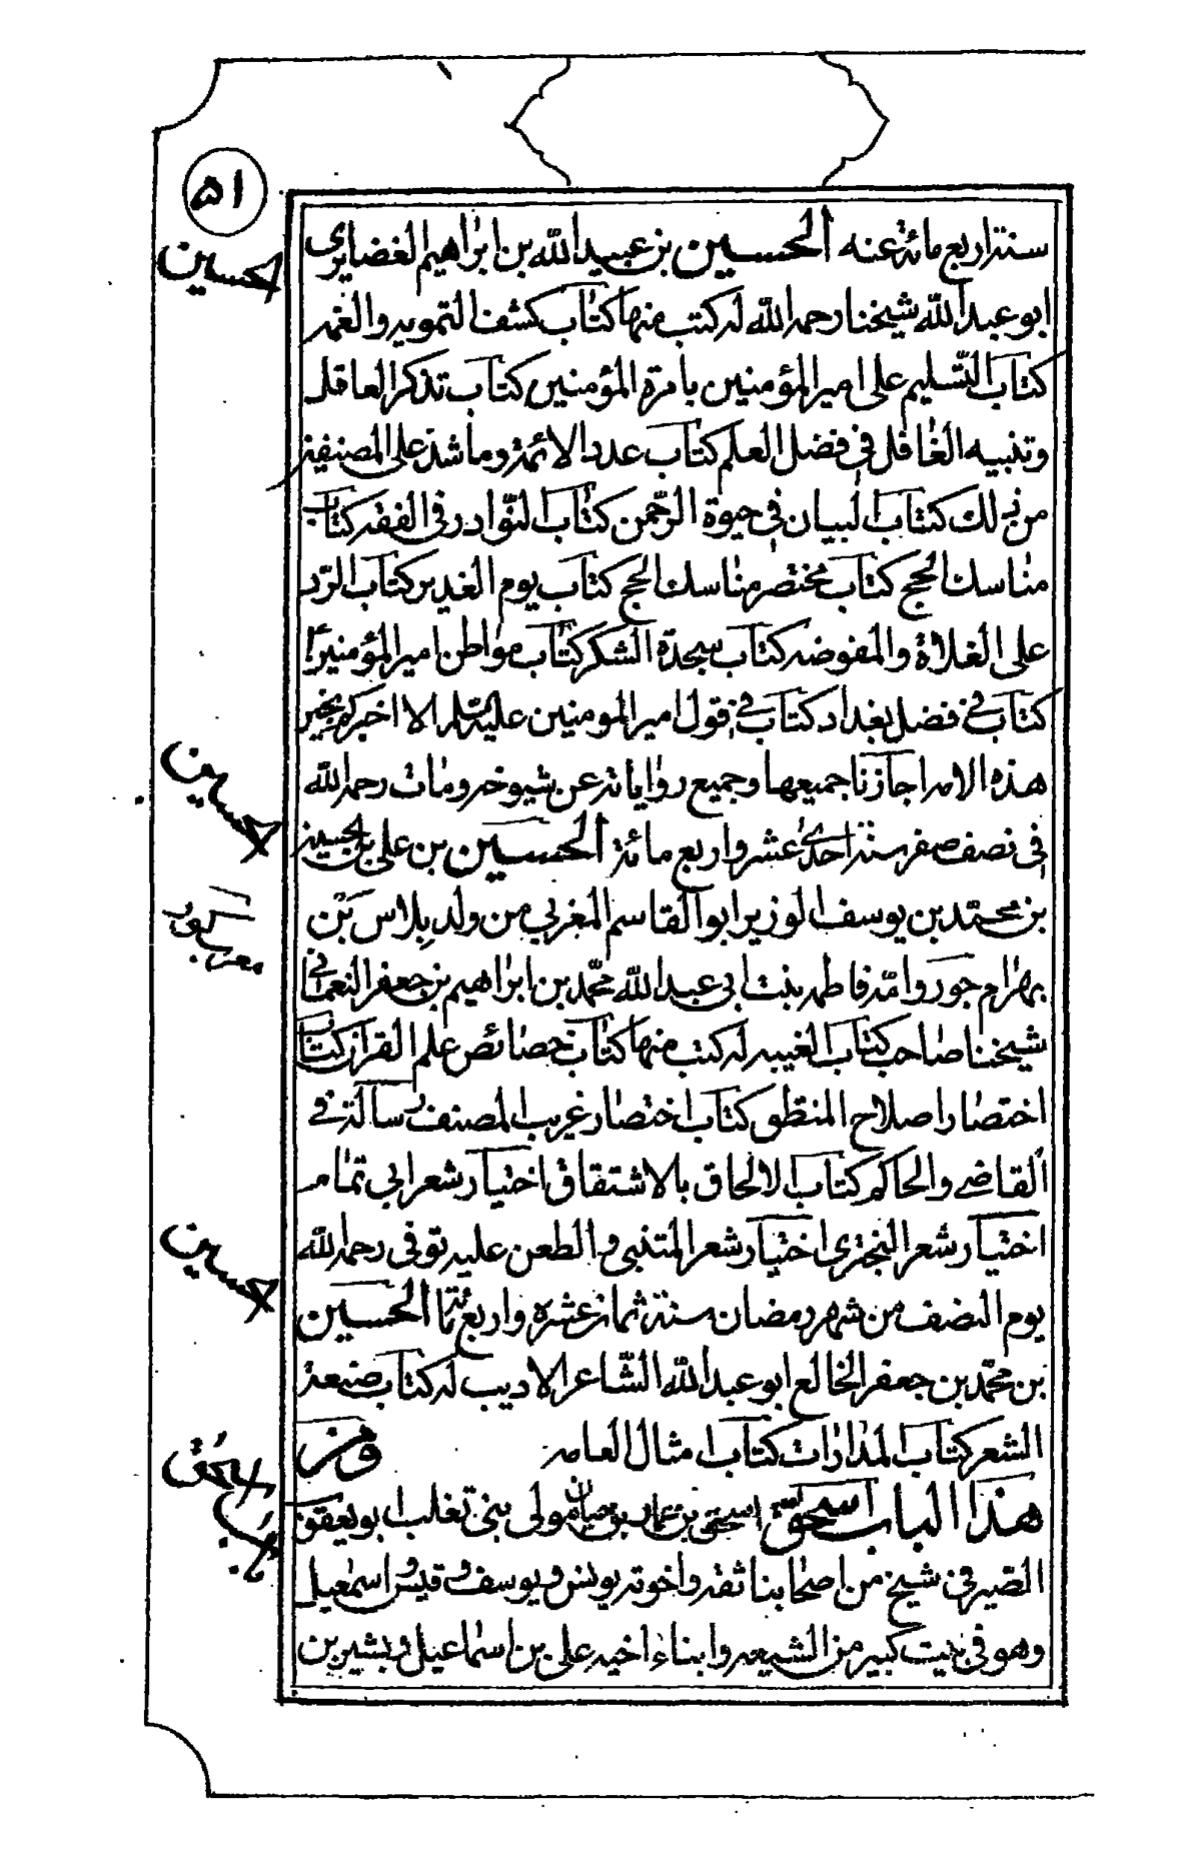 ٥١
سنة اربع مائة عنه الحسين بن عبيد الله بن ابراهيم الغضايرى
الحسين
ابو عبد الله شيخنا رحمه الله له كتب منها كتاب كشف التمويه والغمه
كتاب التسليم على امير المؤمنين بامرة المؤمنين كتاب تذكر العاقل
وتنبيه الغافل فى فضل العلم كتاب عدد الائمة وما شذ على المصنفين
من ذلك كتاب البيان فى حيوة الرّحمن كتاب النّوادر فى الفقه كتاب
مناسك الحج كتاب مختصر مناسك الحج كتاب يوم الغدير كتاب الرّد
على الغلاة والمفوضه كتاب سجدة الشكر كتاب مواطن امير المؤمنين
كتاب فى فضل بغداد كتاب فى قول امير المومنين عليه السلم الا اخبركم بخير
هذه الامه اجازنا جميعها وجميع رواياته عن شيوخه ومات رحمه الله
الحسين
فى نصف صفر سنة احدى عشر واربع مائة الحسين بن على بن الحسين
بن محمّد بن يوسف الوزير ابو القاسم المغربي من ولد بلاس بن
معرب كور
بهرام جور وامّه فاطمه بنت ابى عبد الله محمّد بن ابراهيم بن جعفر النعمانى
شيخنا صاحب كتاب الغيبه له كتب منها كتاب خصائص علم القران كتاب
اختصار اصلاح المنطق كتاب اختصار غريب المصنف رسالة فى
القاضى والحاكم كتاب الالحاق بالاشتقاق اختيار شعر ابي تمام
اختيار شعر البحترى اختيار شعر المتنبى والطعن عليه توفى رحمه الله
الحسين
يوم النصف من شهر رمضان سنة ثمان عشره واربع مائة الحسين
بن محمّد بن جعفر الخالع ابو عبد الله الشّاعر الاديب له كتاب صنعة
الشعر كتاب المدارات كتاب امثال العامه ومن
اسحق
باب
هذا الباب اسحق اسحق بن عمار بن حيان مولى بنى تغلب ابو يعقوب
الصّيرفى شيخ من اصحابنا ثقه واخوته يونس ويوسف وقيس واسمعيل
وهو فى بيت كبير من الشيعه وابناء اخيه على بن اسماعيل وبشير بن